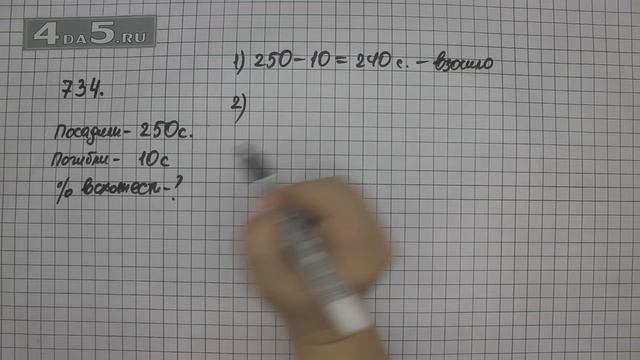 4DA5.RU
734.
Посадили - 250 с.
Погибли - 10 с
% всхожест - ?
1) 250 - 10 = 240 с. - взошло
2)